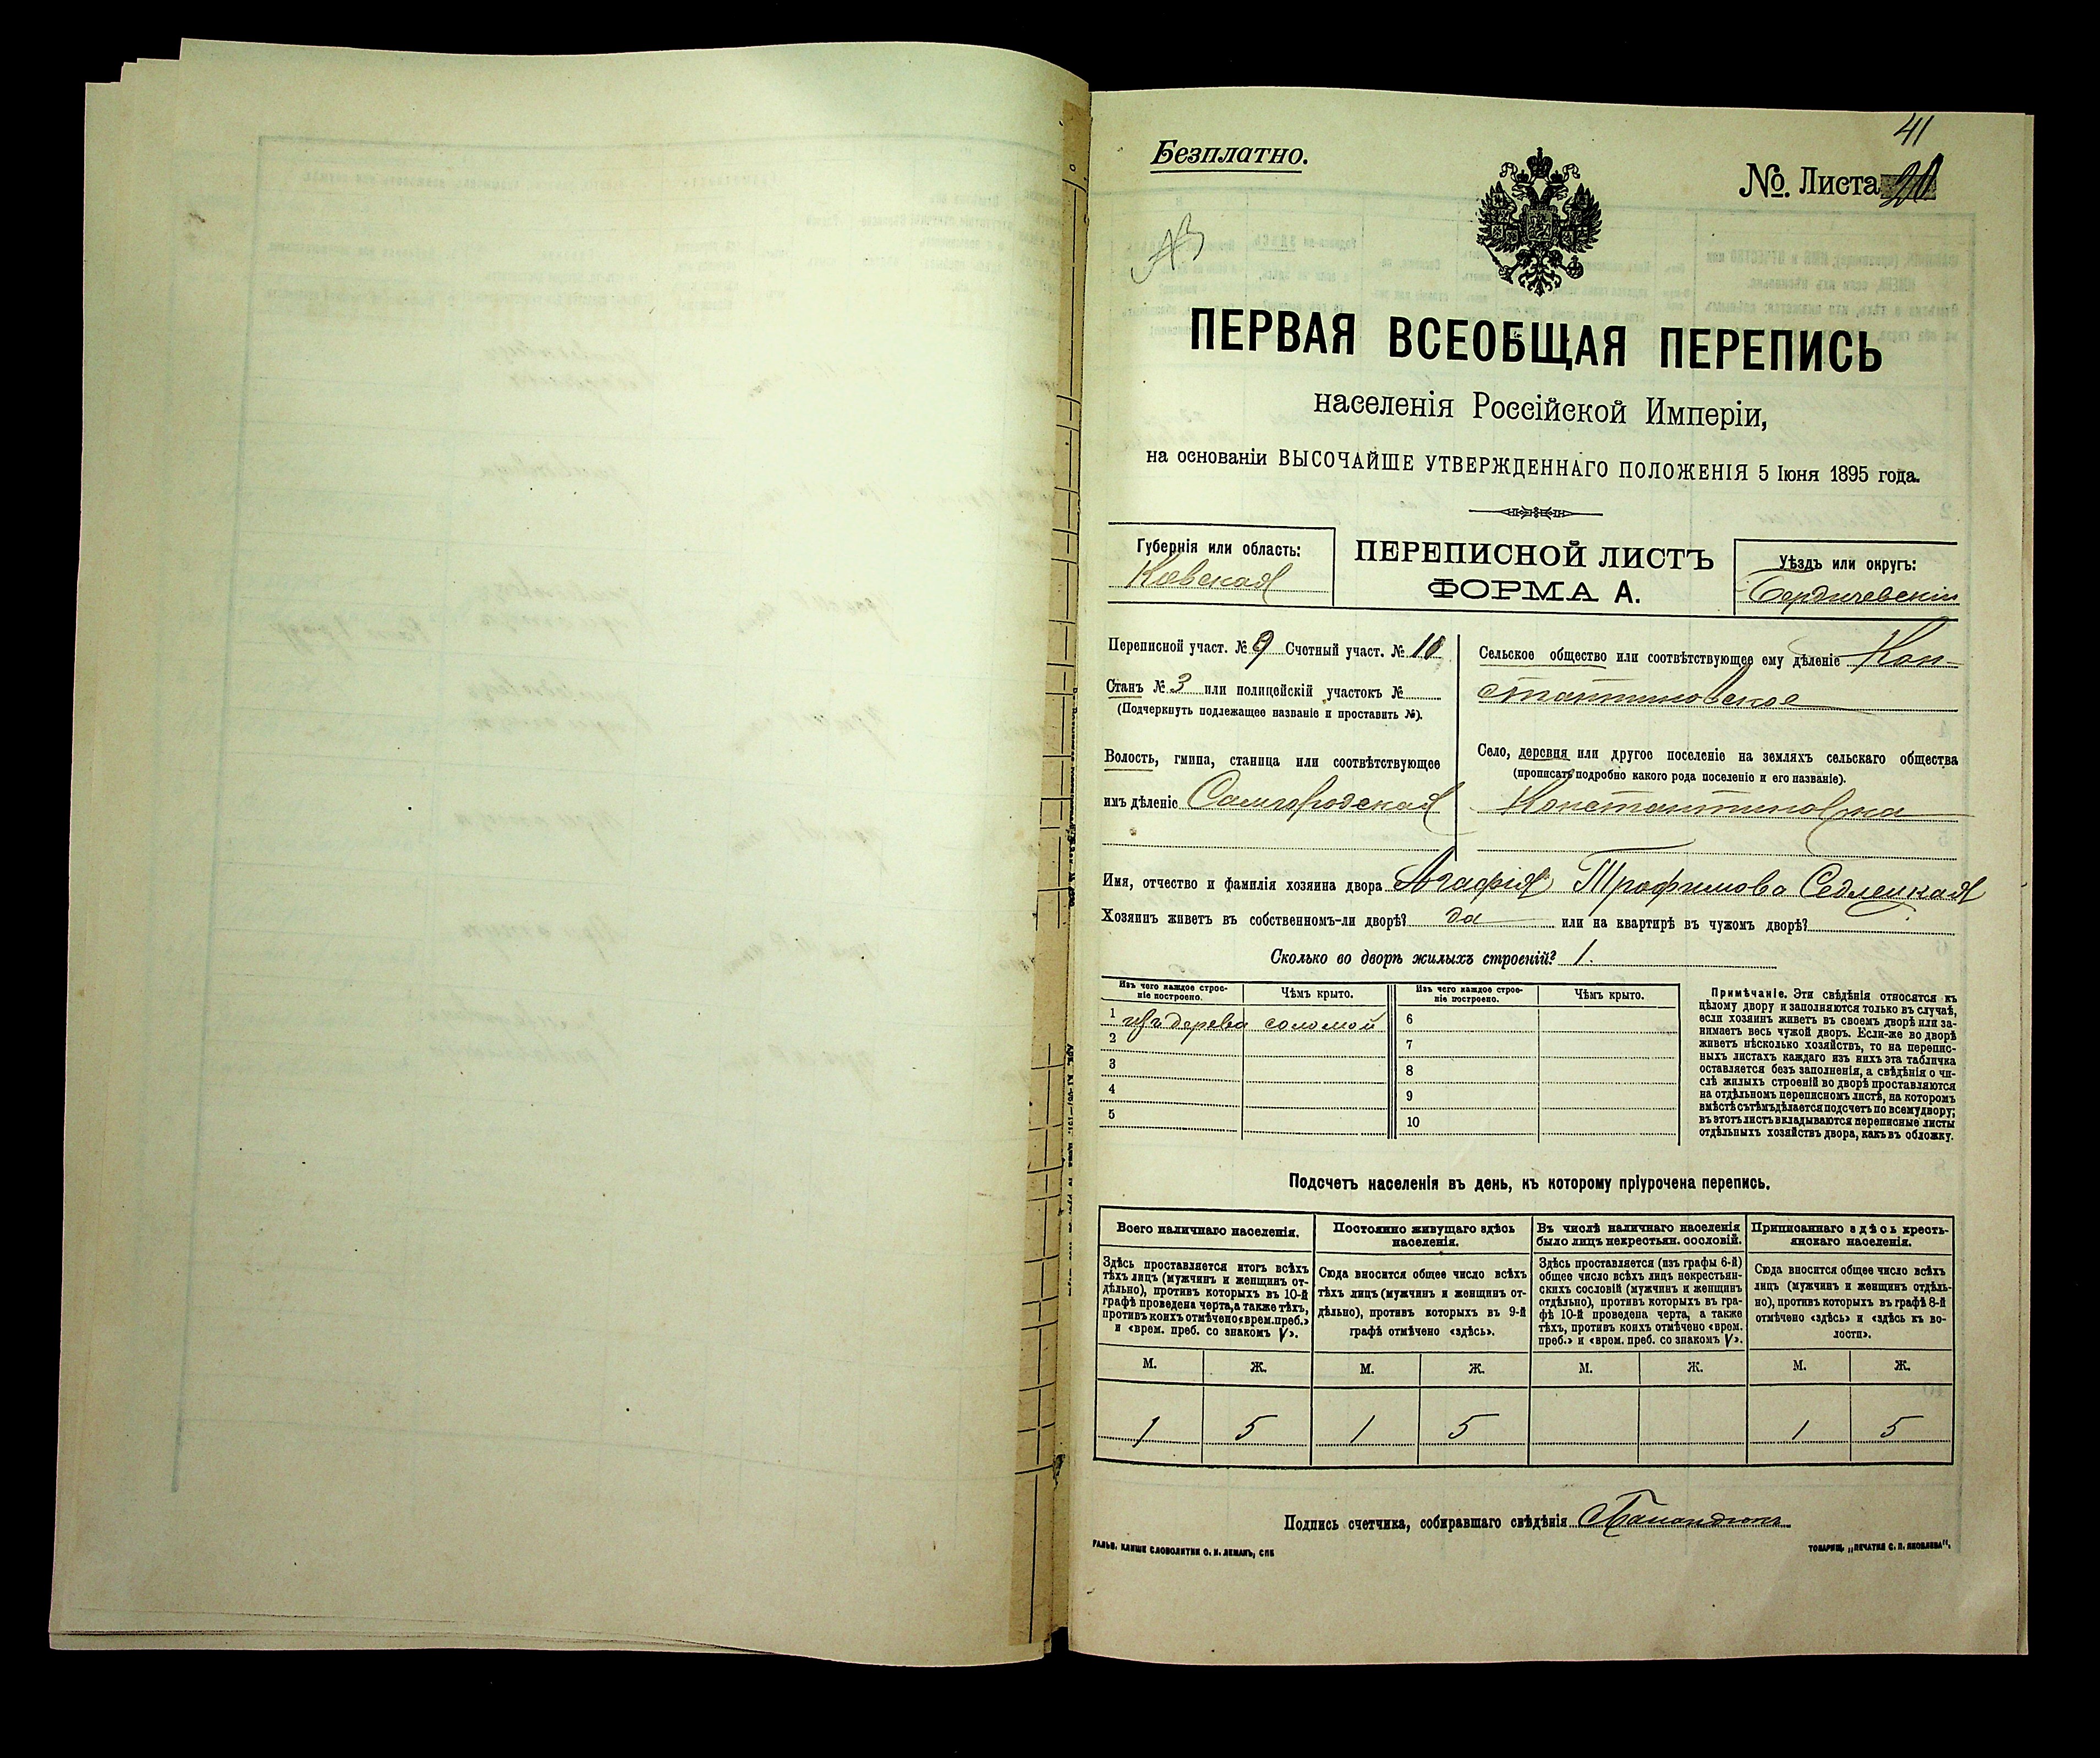 41
Безплатно.
№ Листа
ПЕРВАЯ ВСЕОБЩАЯ ПЕРЕПИСЬ
населенія Россійской Имперіи,
на основаніи ВЫСОЧАЙШЕ УТВЕРЖДЕННАГО ПОЛОЖЕНІЯ 5 Іюня 1895 года.
Губернія или область:
Кіевская
ПЕРЕПИСНОЙ ЛИСТЪ
ФОРМА А.
Уѣздъ или округъ:
Бердичевскій
Переписной участ. № 9 Счетный участ. № 10
Станъ № 3 или полицейскій участокъ №
(Подчеркнуть подлежащее названіе и проставить №).
Волость, гмина, станица или соотвѣтствующее
имъ дѣленіе Самгородская
Сельское общество или соотвѣтствующее ему дѣленіе Кон-
стантиновское
Село, деревня или другое поселеніе на земляхъ сельскаго общества
(прописать подробно какого рода поселеніе и его названіе).
Константиновка
Имя, отчество и фамилія хозяина двора Агафія Трофимова Седлецкая
Хозяинъ живетъ въ собственномъ-ли дворѣ? да или на квартирѣ въ чужомъ дворѣ?
Сколько во дворѣ жилыхъ строеній? 1.
Изъ чего каждое строе-
ніе построено.
Чѣмъ крыто.
Изъ чего каждое строе-
ніе построено.
Чѣмъ крыто.
1 изъ дерева соломой 6
2 7
3 8
4 9
5 10
Примѣчаніе. Эти свѣдѣнія относятся къ
цѣлому двору и заполняются только въ случаѣ,
если хозяинъ живетъ въ своемъ дворѣ или за-
нимаетъ весь чужой дворъ. Если-же во дворѣ
живетъ нѣсколько хозяйствъ, то на перепис-
ныхъ листахъ каждаго изъ нихъ эта табличка
оставляется безъ заполненія, а свѣдѣнія о чи-
слѣ жилыхъ строеній во дворѣ проставляются
на отдѣльномъ переписномъ листѣ, на которомъ
вмѣстѣ съ тѣмъ дѣлается подсчетъ по всему двору;
въ этотъ листъ вкладываются переписные листы
отдѣльныхъ хозяйствъ двора, какъ въ обложку.
Подсчетъ населенія въ день, къ которому пріурочена перепись.
Всего наличнаго населенія.
Постоянно живущаго здѣсь
населенія.
Въ числѣ наличнаго населенія
было лицъ некрестьян. сословій.
Приписаннаго здѣсь кресть-
янскаго населенія.
Здѣсь проставляется итогъ всѣхъ
тѣхъ лицъ (мужчинъ и женщинъ от-
дѣльно), противъ которыхъ въ 10-й
графѣ проведена черта, а также тѣхъ,
противъ коихъ отмѣчено «врем. преб.»
и «врем. преб. со знакомъ V».
Сюда вносится общее число всѣхъ
тѣхъ лицъ (мужчинъ и женщинъ от-
дѣльно), противъ которыхъ въ 9-й
графѣ отмѣчено «здѣсь».
Здѣсь проставляется (изъ графы 6-й)
общее число всѣхъ лицъ некрестьян-
скихъ сословій (мужчинъ и женщинъ
отдѣльно), противъ которыхъ въ гра-
фѣ 10-й проведена черта, а также
тѣхъ, противъ коихъ отмѣчено «врем.
преб.» и «врем. преб. со знакомъ V».
Сюда вносится общее число всѣхъ
лицъ (мужчинъ и женщинъ отдѣль-
но), противъ которыхъ въ графѣ 8-й
отмѣчено «здѣсь» и «здѣсь къ во-
лости».
М. Ж. М. Ж. М. Ж. М. Ж.
1 5 1 5 1 5
Подпись счетчика, собиравшаго свѣдѣнія
ГАЛЬВ. КЛИШЕ СЛОВОЛИТНИ О. И. ЛЕМАНЪ, СПБ
ТОВАРИЩ. „ПЕЧАТНЯ С. П. ЯКОВЛЕВА“.